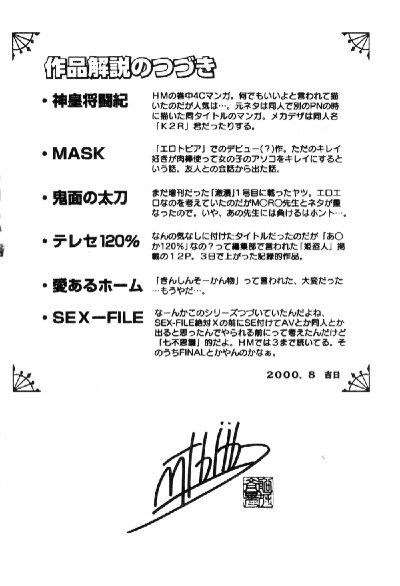 作品解説のつづき
・神皇将闘紀
HMの巻中4Cマンガ。何でもいいよと言われて描
いたのだが人気は…。元ネタは同人で別のPNの時
に描いた同タイトルのマンガ。メカデザは同人名
「K2R」君だったりする。
・MASK
「エロトピア」でのデビュー(?)作。ただのキレイ
好きが肉棒使って女の子のアソコをキレイにすると
いう話。友人との会話から出た話。
・鬼面の太刀
まだ増刊だった「激漫」1号目に載ったヤツ。エロエ
ロなのを考えていたのだがMORO先生とネタが重
なったので。いや、あの先生には負けるはホント…。
・テレセ120%
なんの気なしに付けたタイトルだったのだが「あ〇
か120%なの?って編集部で言われた「姫盗人」掲
載の12P。3日で上がった記録的作品。
・愛あるホーム
「きんしんそーかん物」って言われた、大変だった
…もうやだ…。
・SEX－FILE
なーんかこのシリーズつづいていたんだよね、
SEX-FILE絶対Xの前にSE付けてAVとか同人とか
出ると思ったんでやられる前にって考えたんだけど
「七不思議」的だよ。HMでは3まで続いてる。そ
のうちFINALとかやんのかなぁ。
2000. 8 吉日